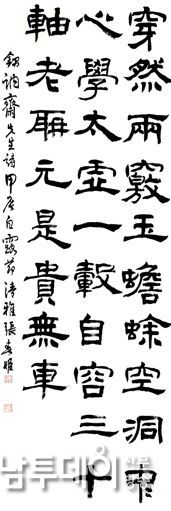 穿然兩竅玉蟾蜍空洞中
心學太虛一轂自容三十
軸老聃元是貴無車
訥齋先生詩甲辰白露節清雅張春姬
남투데이